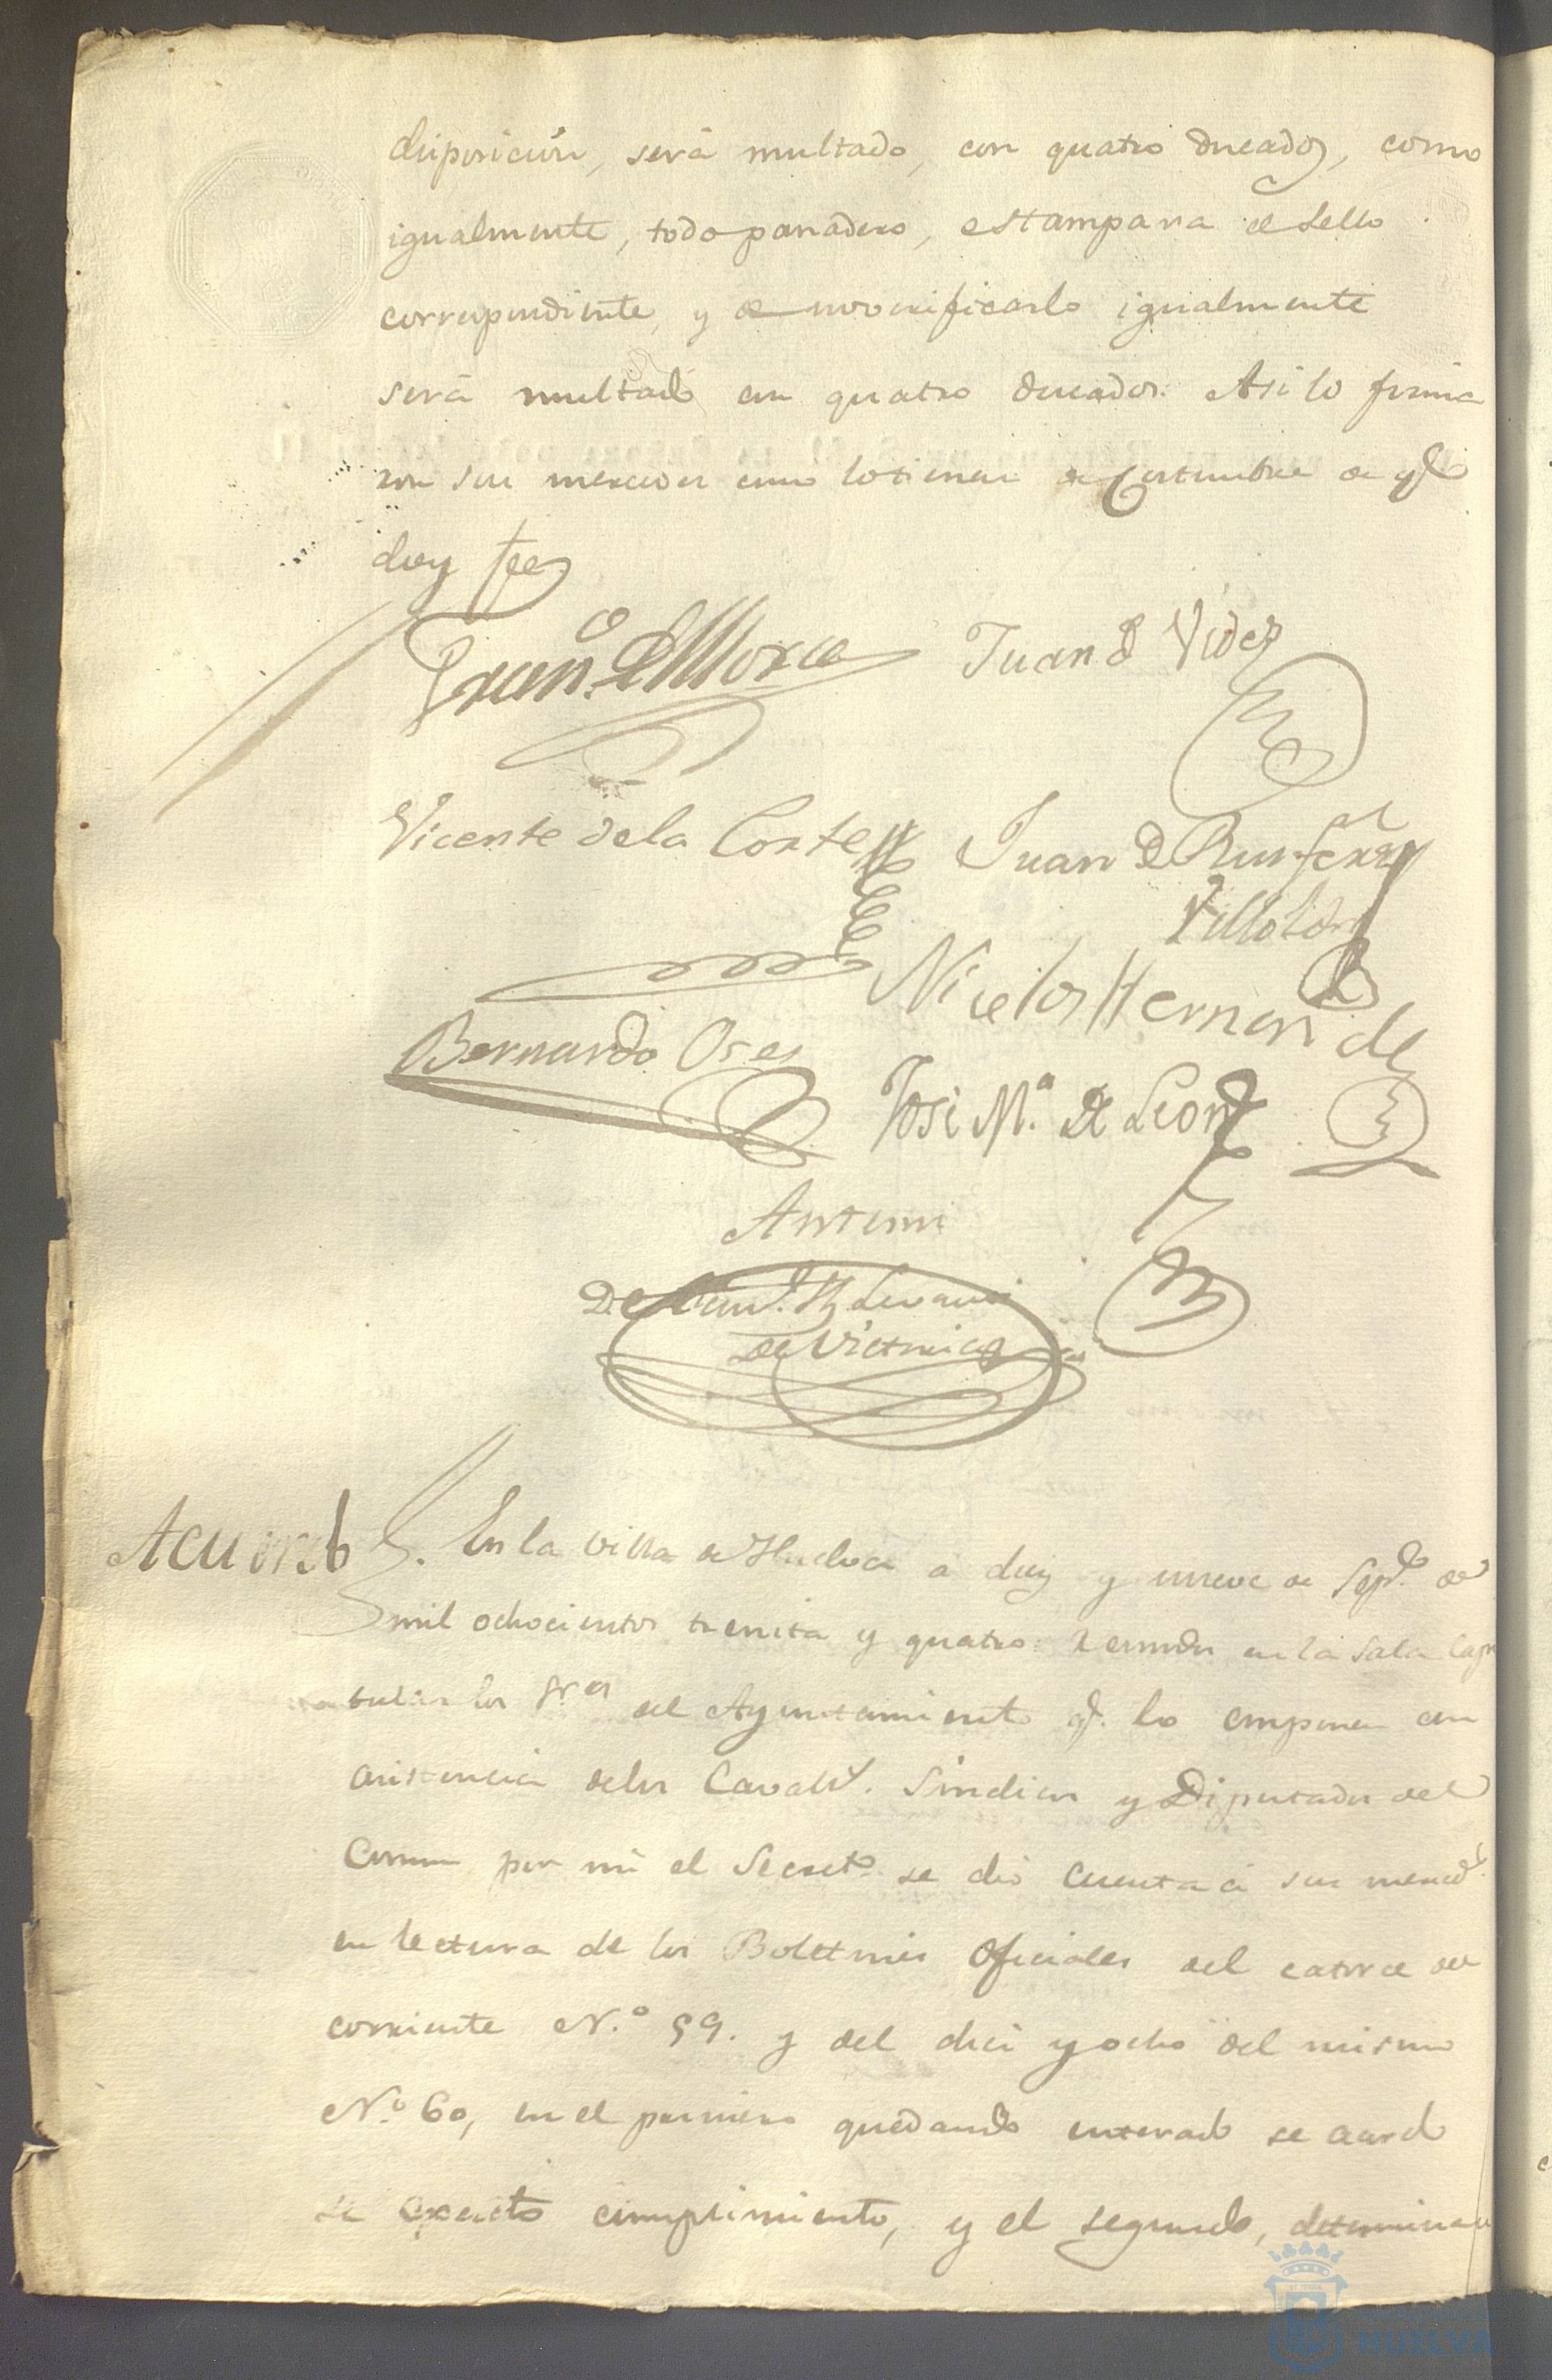 disposición, será multado, con quatro ducados, como
igualmente, todo panadero, estampara el sello
correspondiente, y de no verificarlo igualmente
será multado en quatro ducados. Asi lo firma
ron sus mercedes como lo tienen de Costumbre de qe
doy fee
Franco. de Mora Juan de Videz
Vicente de la Corte Juan de
Villoldo
Nicolas Hernandez
Bernardo Oses
José Ma. de Leon
Antemi
de Victoria
Acuerdo En la villa de Huelva a diez y nueve de Sepe. de
mil ochocientos treinta y quatro: Reunidos en la Sala Capi
tular los Sres del Ayuntamiento q. lo componen con
asistencia de los Cavalls. Sindicos y Diputados del
Comun por mi el Secreto. se dió cuenta á sus merceds.
en lectura de los Boletines Oficiales del catorce del
corriente N.o 59. y del diez y ocho del mismo
N.o 60, en el primero quedando enterado se acordó
su exacto cumplimiento, y el segundo, determinan
HUELVA